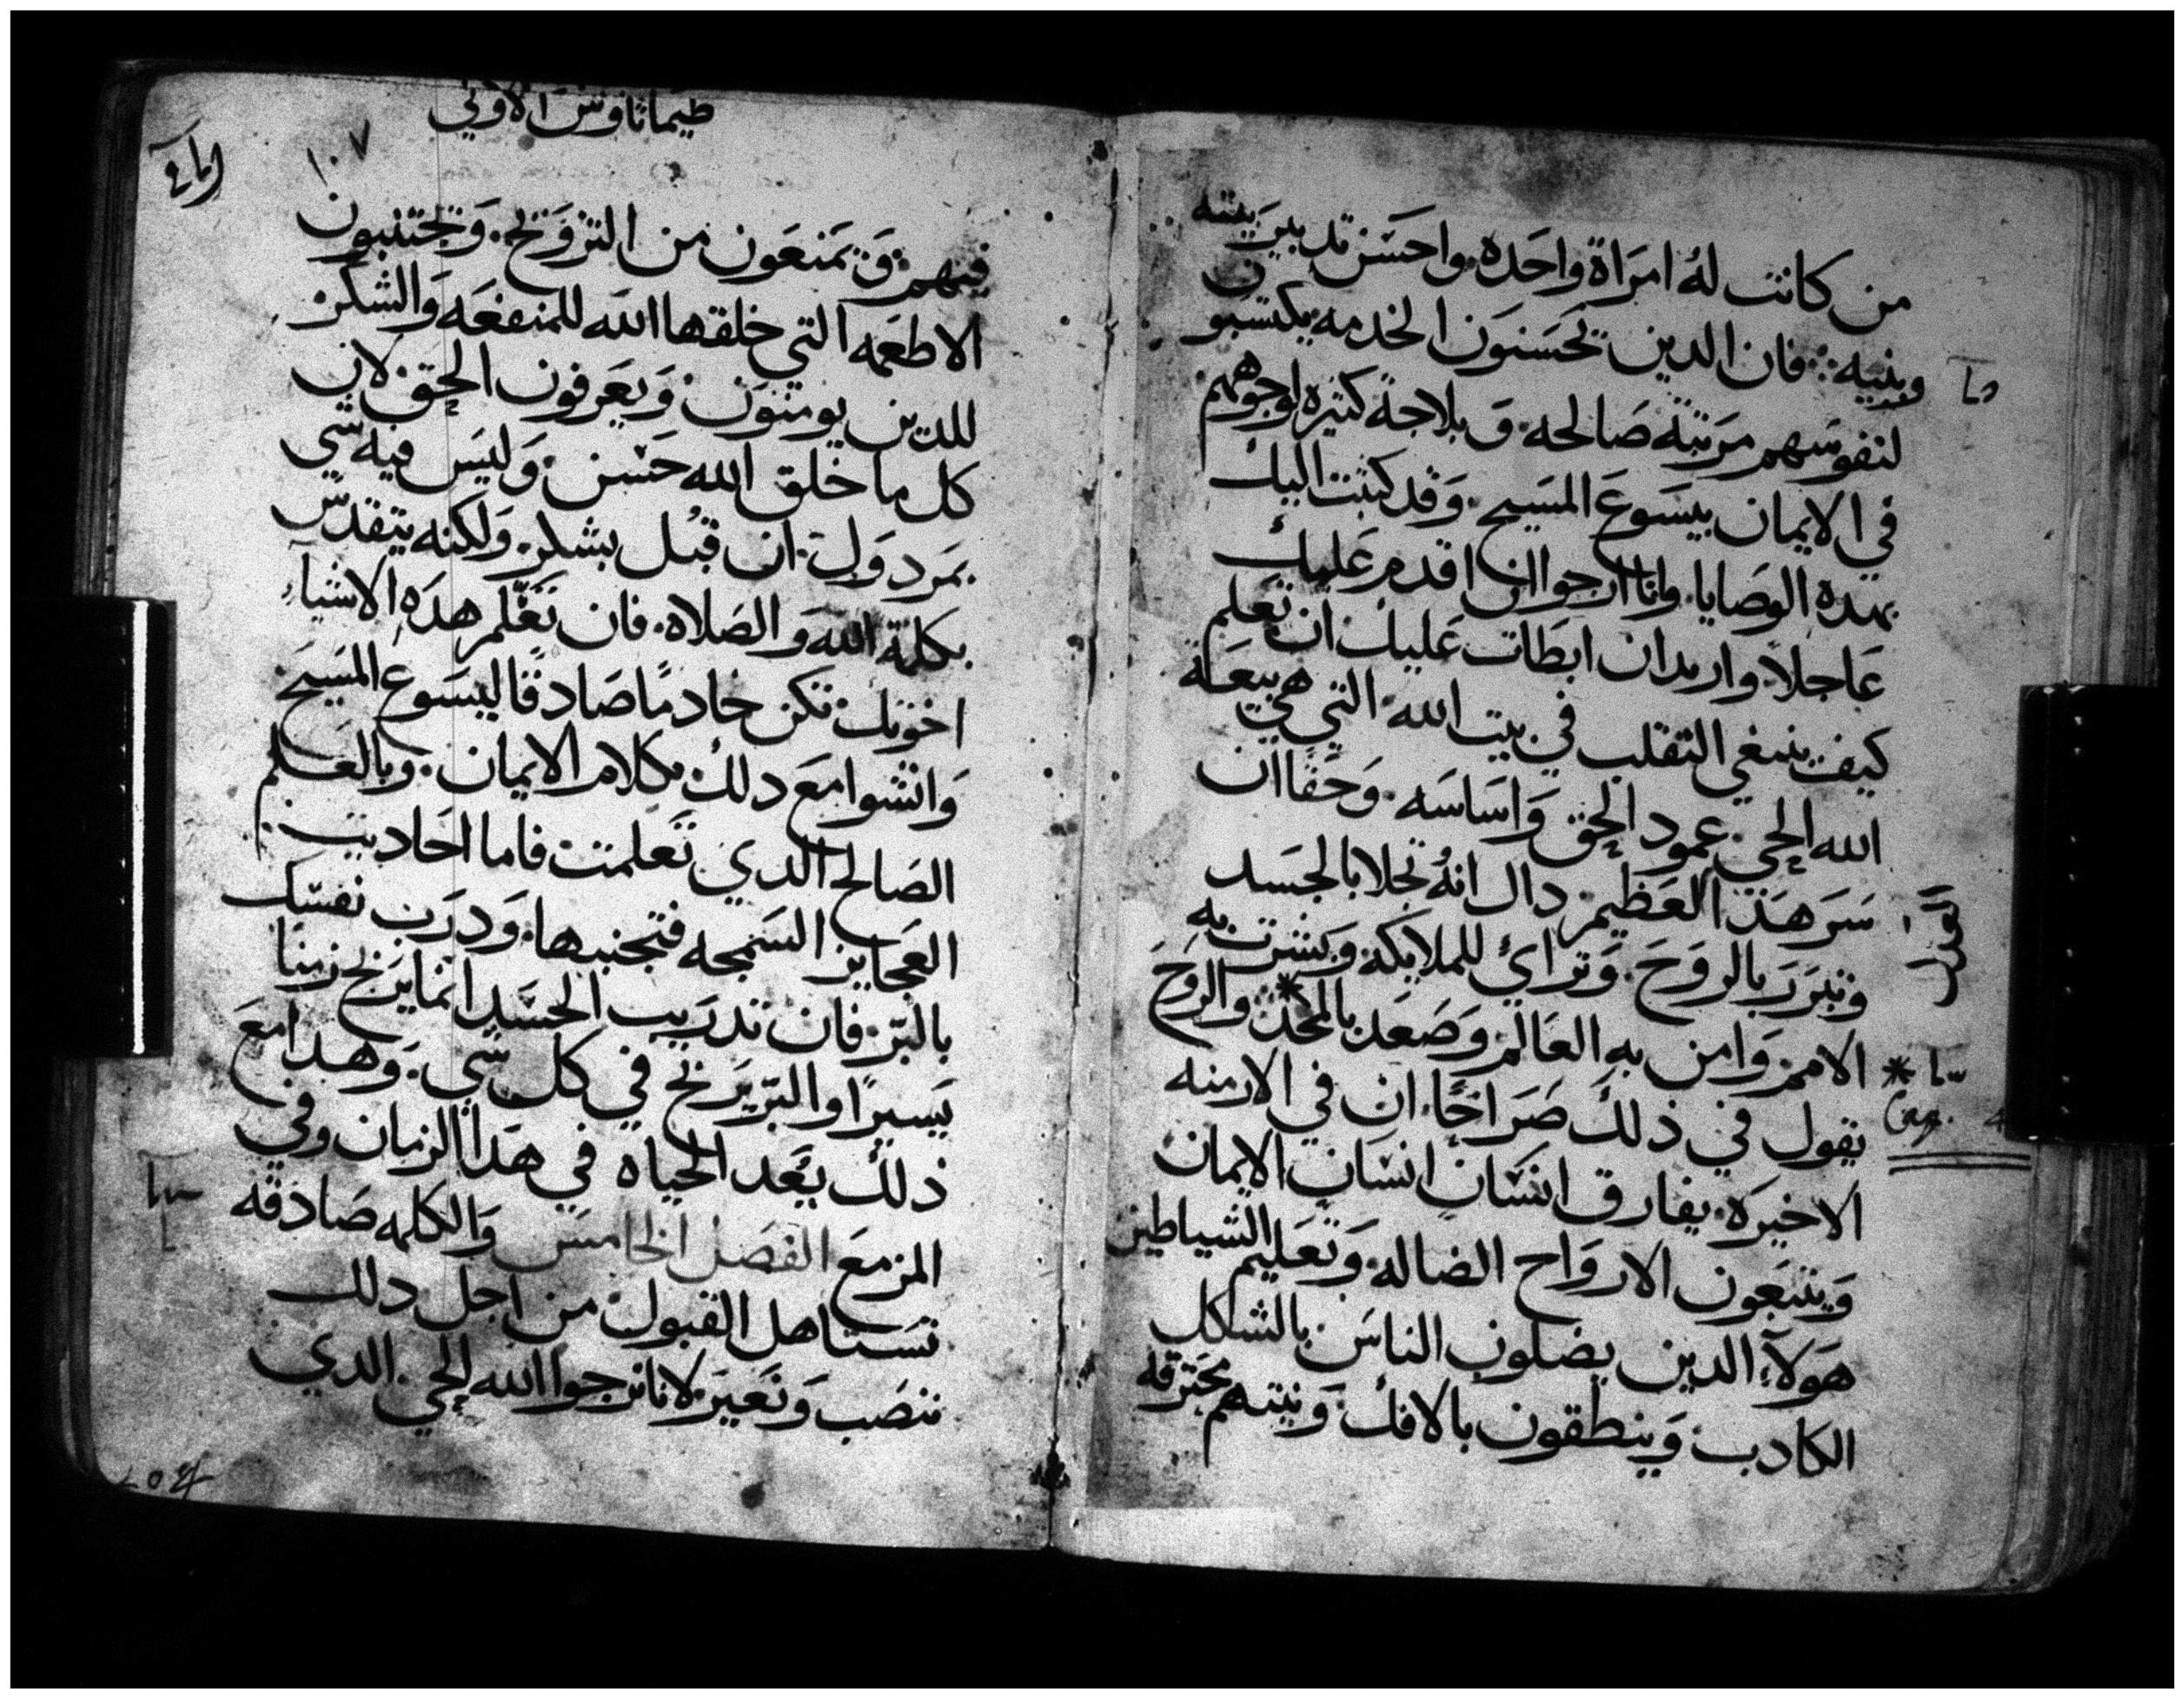 من كانت له امراة واحده. واحسن تدبير بيته
وبنيه: فان الدين يحسنون الخدمه يكتسبون
لنفوسهم مرتبة صالحه. وبلاجة كثيره لوجوههم
في الايمان بيسوع المسيح. وقد كتبت اليك
بهده الوصايا. وانا ارجوا ان اقدم عليك
عاجلا. واريد ان ابطات عليك ان تعلم
كيف ينبغي التقلب في بيت الله. التي هي بيعة
الله الحي. عمود الحق واساسه. وحقا ان
سر هذا العظيم. دال انه تجلا بالجسد
وتبرر بالروح. وتراي للملايكه وبشرت به
الامم. وامن به العالم. وصعد بالمجد* والروح
Cap. 4
يقول في ذلك صراحا. ان في الازمنه
الاخيره. يفارق انسان انسان الايمان
ويتبعون الارواح الضاله. وتعليم الشياطين
هولاء الدين يضلون الناس بالشاكل
الكادب وينطقون بالافك. ونيتهم محترقه
طيماتاوس الاولي
١٠٧
فيهم. ويمنعون من التزويج. ويجتنبون
الاطعمه التي خلقها الله للمنفعه والشكر.
للدين يومنون ويعرفون الحق. لان
كل ما خلق الله حسن. وليس فيه شي
بمردول. ان قبل بشكر. ولكنه يتقدس
بكلمة الله والصلاه. فان تعلم هده الاشياء
اخوتك. تكن خادما صادقا ليسوع المسيح
وانشوا مع دلك بكلام الايمان. وبالعلم
الصالح الدي تعلمت فاما احاديث
العجايز السمجه فتجنبها. ودرب نفسك
بالبر. فان تدريب الجسد انما يربح زمنا
يسيرا والبر يربح في كل شي. وهدا مع
ذلك بعد الحياه في هدا الزمان وفي
المزمع الفصل الخامس والكلمه صادقه
تستاهل القبول. من اجل دلك
ننصب ونعير. لانا نرجوا الله الحي. الدي